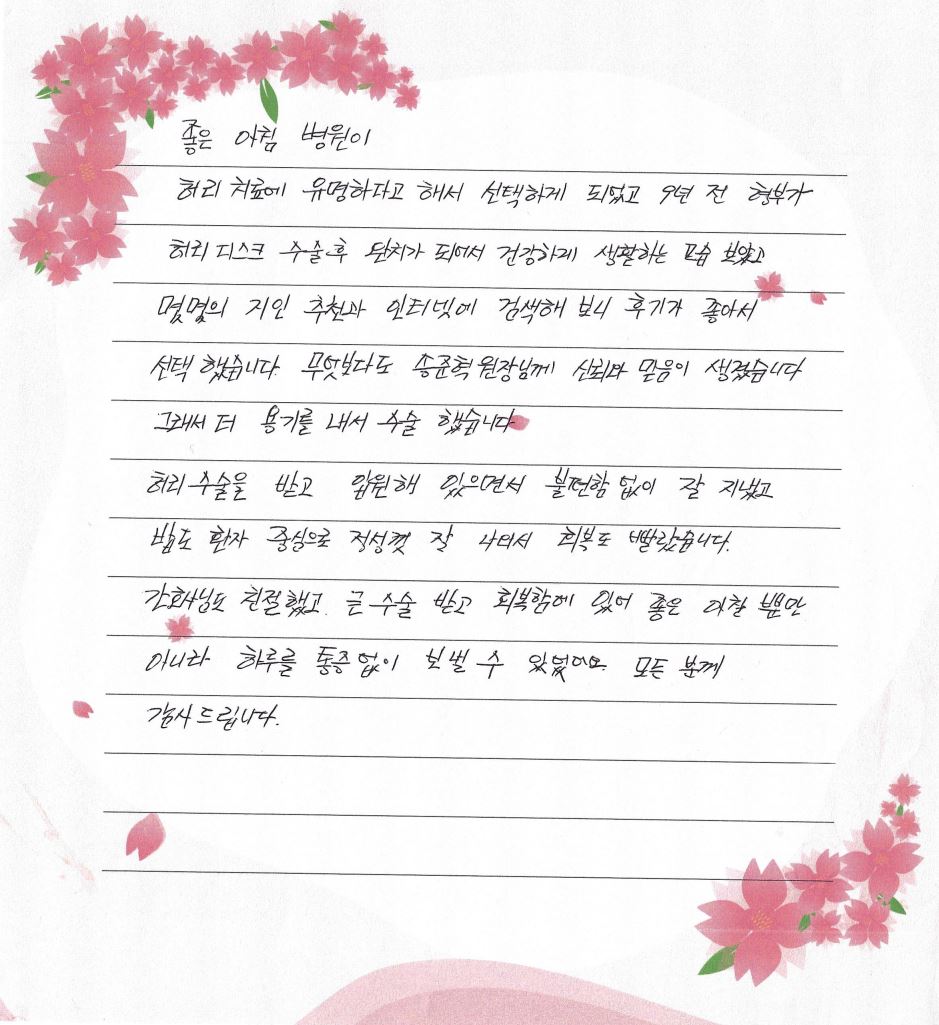 좋은 아침 병원이
허리 치료에 유명하다고 해서 선택하게 되었고 9년 전 형부가
허리 디스크 수술후 완치가 되어서 건강하게 생활하는 모습 보았고
몇몇의 지인 추천과 인터넷에 검색해 보니 후기가 좋아서
선택 했습니다. 무엇보다도 송준혁 원장님께 신뢰와 믿음이 생겼습니다
그래서 더 용기를 내서 수술 했습니다
허리 수술을 받고 입원해 있으면서 불편함 없이 잘 지냈고
밥도 환자 중심으로 정성껏 잘 나와서 회복도 빨랐습니다.
간호사님도 친절했고. 큰 수술 받고 회복함에 있어 좋은 아침 뿐만
아니라 하루를 통증 없이 보낼 수 있었어요 모든 분께
감사 드립니다.